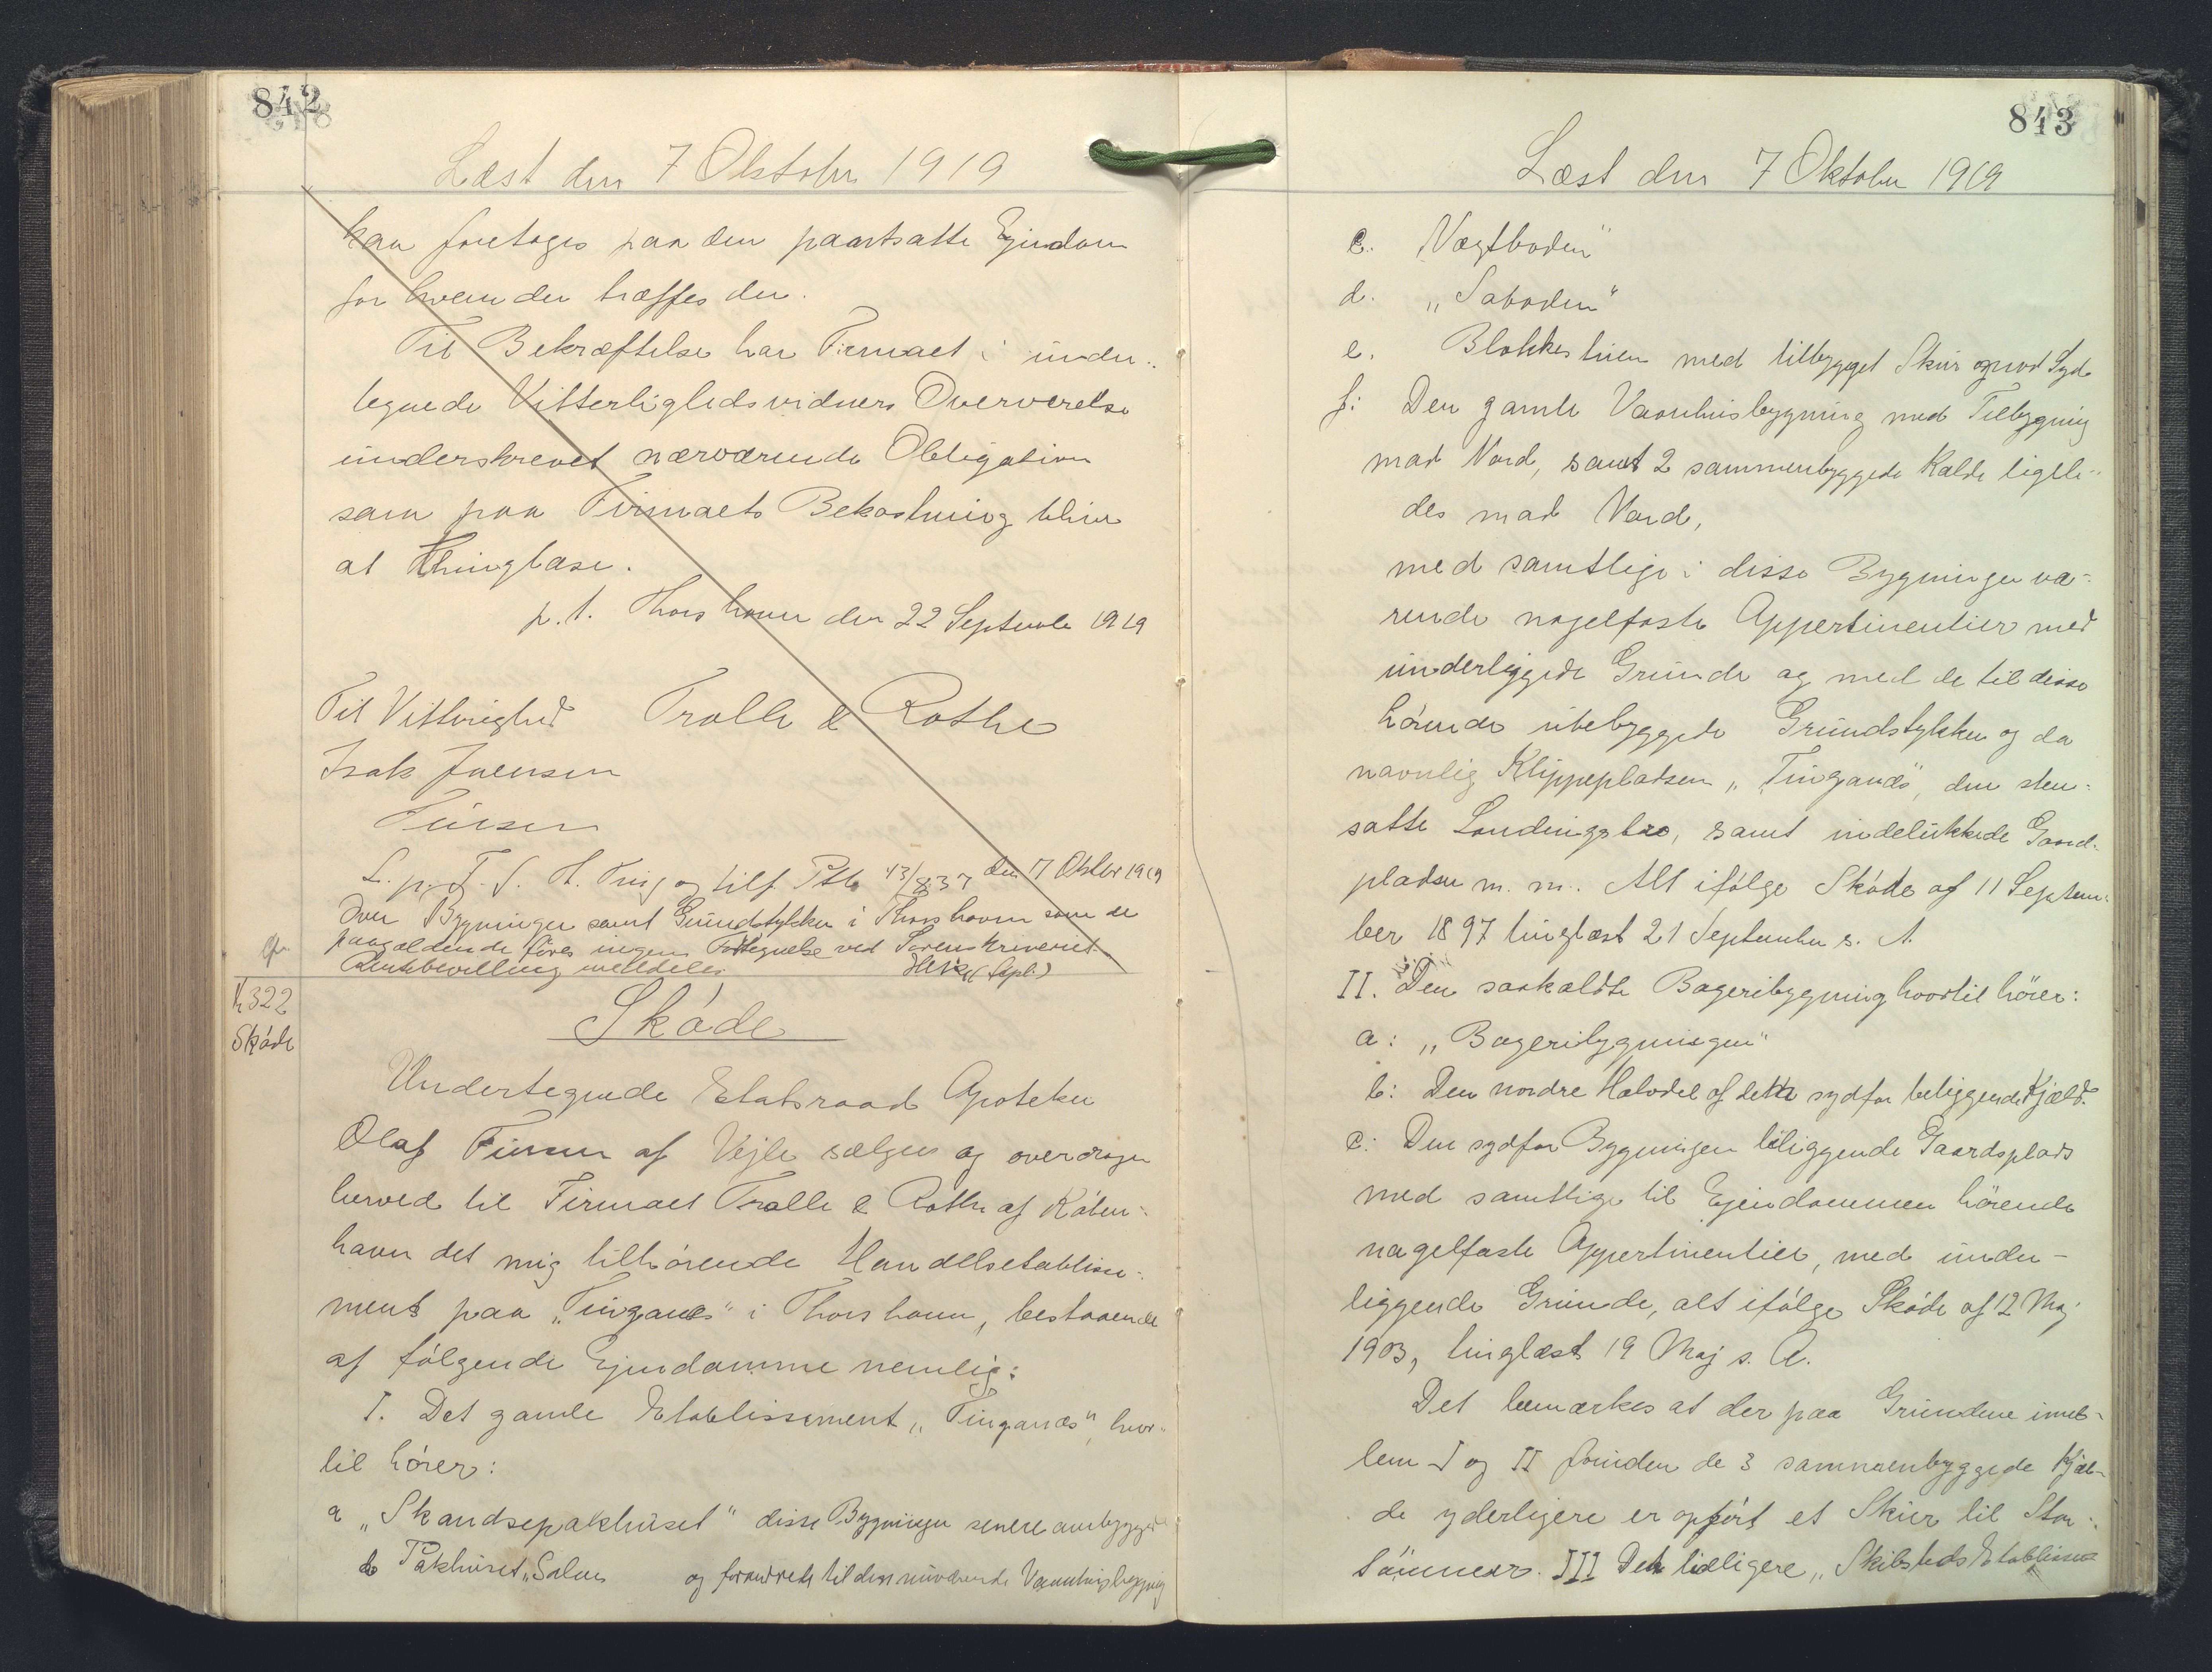 842
Læst den 7 Oktober 1919
kan foretages paa den pantsatte Ejendom
for hvem der træffes der.
Til Bekræftelse har Firmaet i under-
tegnede Vitterlighedsvidners Overværelse
underskrevet nærværende Obligation
som paa Firmaets Bekostning bliver
at thinglæse.
p.t. Thorshavn den 22 September 1919
Til Vitterlighed Trolle & Rothe
Isak Joensen
Finsen
L. p. F. S. H. Ting og tilf. Ptb 43/837 den 7 Oktober 1919
Over Bygninger samt Grundstykker i Thorshavn som de
paagældende føres ingen Fortegnelse ved Sorenskriveriet
meddeles
K322
Skøde
Skøde
Undertegnede Etatsraad Apoteker
Olaf Finsen af Vejle sælger og overdrager
herved til Firmaet Trolle & Rothe af Køben-
havn det mig tilhørende Handelsetablisse-
ment paa „Tinganæs" i Thorshavn, bestaaende
af følgende Ejendomme nemlig:
I. Det gamle Etablissement „Tinganæs", hvor-
til hører:
a „Skandsepakhuset" disse Bygninger senere ombygget
b Pakhuset „Salen og forandret til den nuværende Vaanhusbygning
843
Læst den 7 Oktober 1919
c. „Vægtboden"
d. „Saboden"
e. Blokkestuen med tilbygget Skur mod Syd
f: Den gamle Vaanhusbygning med Tilbygning
mod Nord, samt 2 sammenbyggede Kælde ligele-
des mod Nord,
med samtlige i disse Bygninger væ-
rende nagelfaste Appertinentier med
underliggende Grunde og med de til disse
hørende ubebyggede Grundstykker og da
navnlig Klippepladsen „Tinganæs", den sten-
satte Landingsbro, samt indelukkede Gaard-
pladser m. m. Alt ifølge Skøde af 11 Septem-
ber 1897 tinglæst 21 September s. A.
II. Den saakaldte Bageribygning hvortil hører:
a: „Bageribygningen"
b: Den nordre Halvdel af dette sydfor beliggende Kjæld.
c: Den sydfor Bygningen beliggende Gaardsplads
med samtlige til Ejendommen hørende
nagelfaste Appertinentier, med under-
liggende Grunde, alt ifølge Skøde af 12 Maj
1903, tinglæst 19 Maj s. A.
Det bemærkes at der paa Grundene imel-
lem I og II foruden de 3 sammenbyggede Kjæl-
de yderligere er opført et Skur til Stor-
tømmer. III Det tidligere „Skibsteds Etablissem